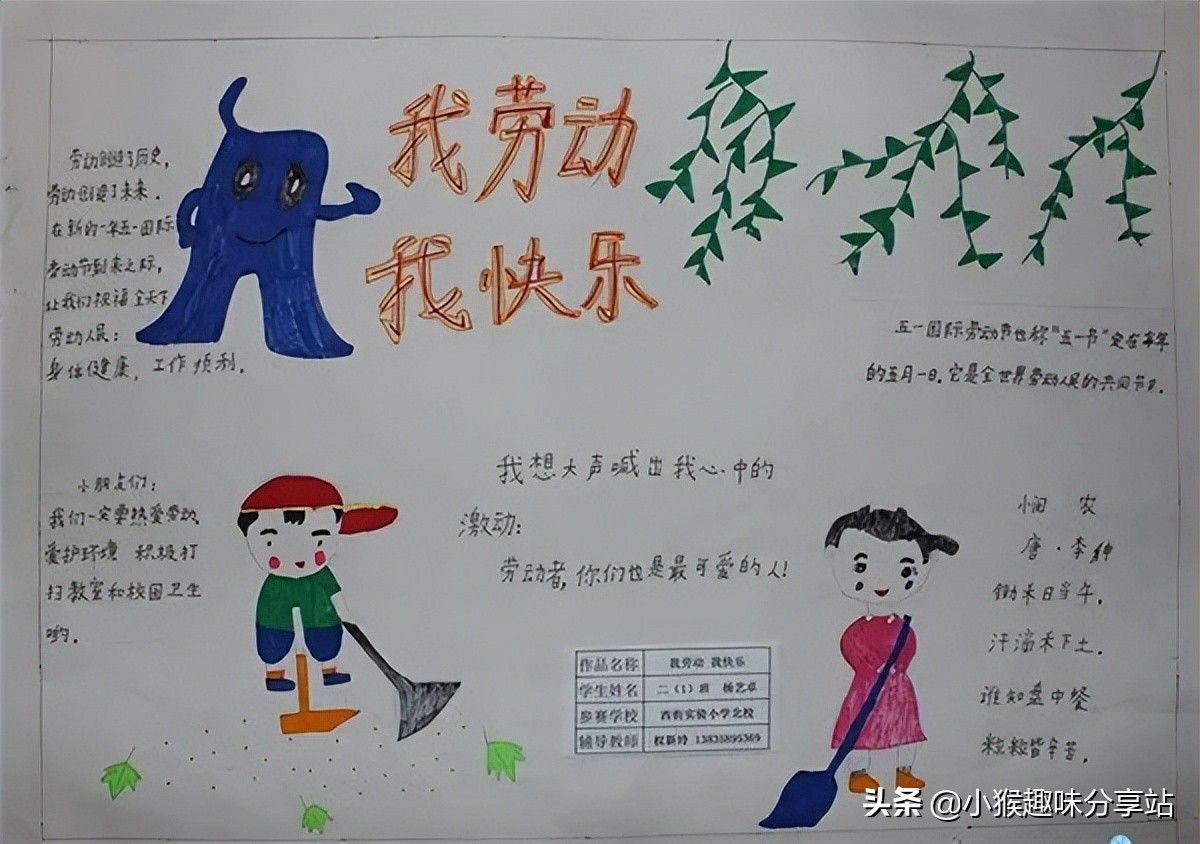 我劳动
我快乐
劳动创造了历史，
劳动创造了未来．
在新的一年五一国际
劳动节到来之际，
让我们祝福全天下
劳动人民：
身体健康，工作顺利．
五一国际劳动节也称"五一节"定在每年
的五月一日．它是全世界劳动人民的共同节日．
小朋友们：
我们一定要热爱劳动．
爱护环境 积极打
扫教室和校园卫生
哟．
我想大声喊出我心中的
激动：
劳动者，你们也是最可爱的人！
悯 农
唐·李绅
锄禾日当午．
汗滴禾下土．
谁知盘中餐
粒粒皆辛苦．
作品名称 我劳动 我快乐
学生姓名 二（1）班 杨艺卓
参赛学校 西街实验小学北校
辅导教师 权新玲 13835895369
头条 @小猴趣味分享站